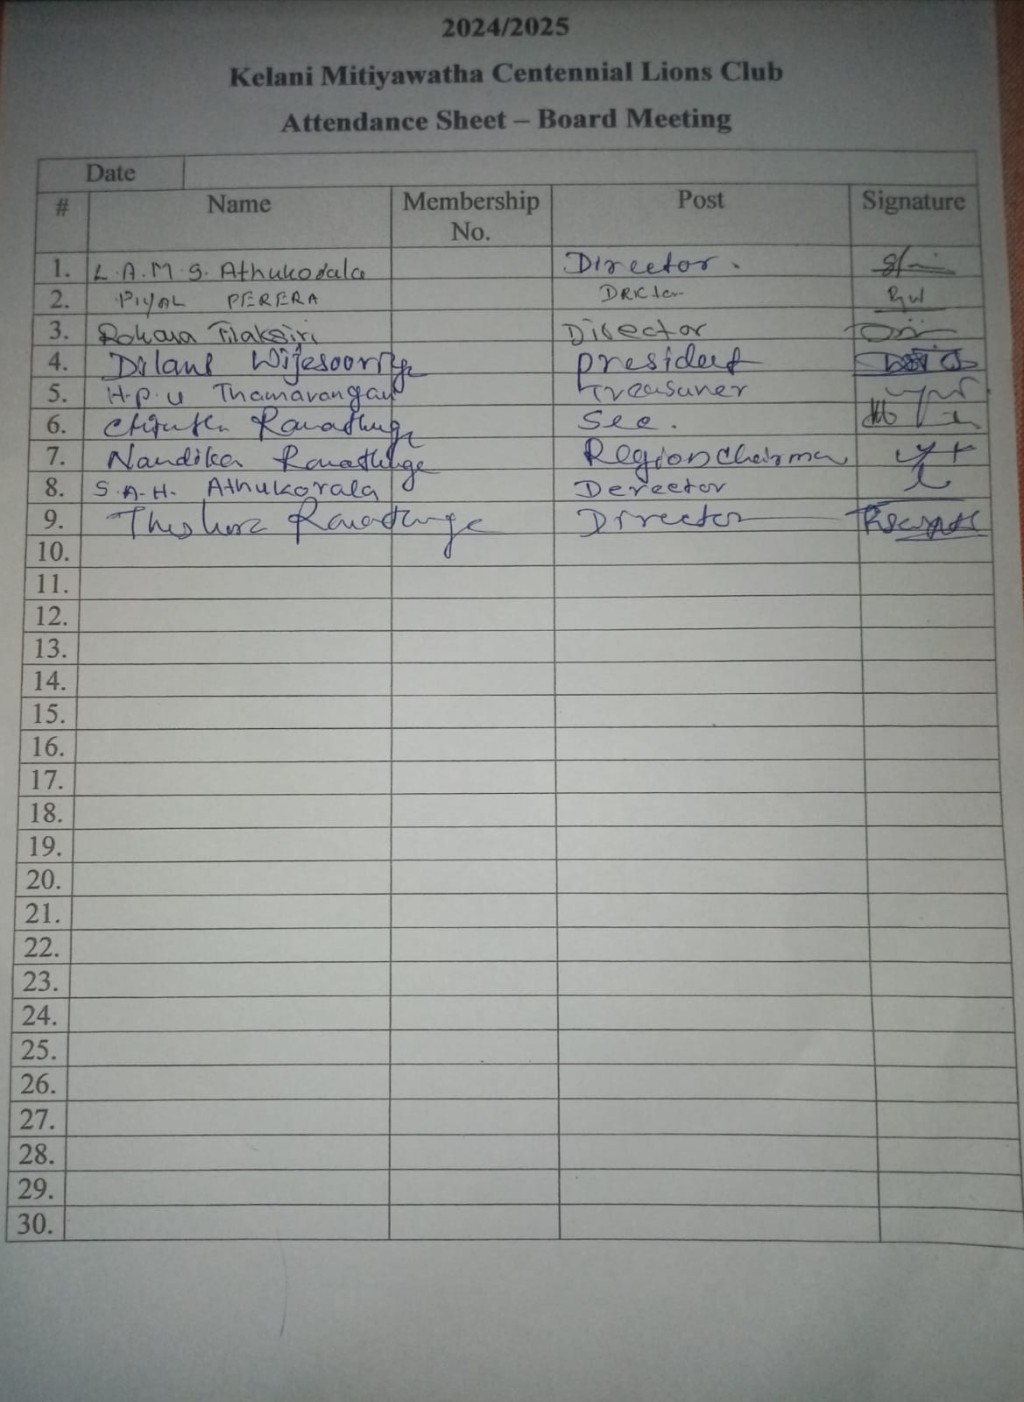 2024/2025
Kelani Mitiyawatha Centennial Lions Club
Attendance Sheet – Board Meeting
Date
# Name Membership No. Post Signature
1. L.A.M.S. Athukorala Director.
2. PIYAL PERERA
3. Rohana Tilaksiri Director
4. Dilani Wijesooriye president
5. H.P.U Thamarangani Treasurer
6. Ranathunge Sec.
7. Nandika Ranathunge Region Chairman
8. S.A.H. Athukorala Derector
9. Ranathunge Director
10.
11.
12.
13.
14.
15.
16.
17.
18.
19.
20.
21.
22.
23.
24.
25.
26.
27.
28.
29.
30.